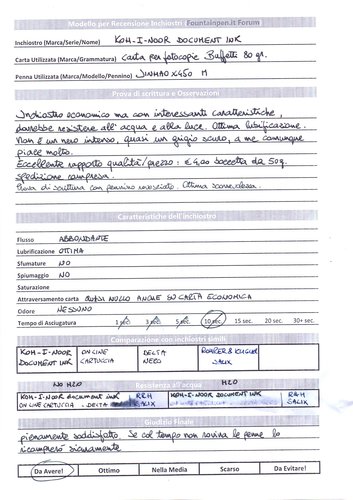 Modello per Recensione Inchiostri Fountainpen.it Forum
Inchiostro (Marca/Serie/Nome) KOH-I-NOOR DOCUMENT INK
Carta Utilizzata (Marca/Grammatura) Carta per fotocopie Buffetti 80 gr.
Penna Utilizzata (Marca/Modello/Pennino) JINHAO X450 M
Prova di scrittura e Osservazioni
Inchiostro economico ma con interessanti caratteristiche,
dovrebbe resistere all'acqua e alla luce. Ottima lubrificazione.
Non è un nero intenso, quasi un grigio scuro, a me comunque
piace molto.
Eccellente rapporto qualità/prezzo: € 4,00 boccetta da 50g.
spedizione compresa.
Prova di scrittura con pennino rovesciato. Ottima scorrevolezza.
Caratteristiche dell'inchiostro
Flusso ABBONDANTE
Lubrificazione OTTIMA
Sfumature NO
Spiumaggio NO
Saturazione
Attraversamento carta QUASI NULLO ANCHE SU CARTA ECONOMICA
Odore NESSUNO
Tempo di Asciugatura 1 sec. 3 sec. 5 sec. 10 sec. 15 sec. 20 sec. 30+ sec.
Comparazione con inchiostri simili
KOH-I-NOOR ONLINE DELTA ROHRER & KLINGNER
DOCUMENT INK CARTUCCIA NERO SALIX
NO H2O Resistenza all'acqua H2O
KOH-I-NOOR document INK R&H KOH-I-NOOR DOCUMENT INK R&H
ONLINE CARTUCCIA - DELTA SALIX SALIX
Giudizio Finale
pienamente soddisfatto. Se col tempo non rovina le penne lo
ricomprerò sicuramente.
Da Avere! Ottimo Nella Media Scarso Da Evitare!